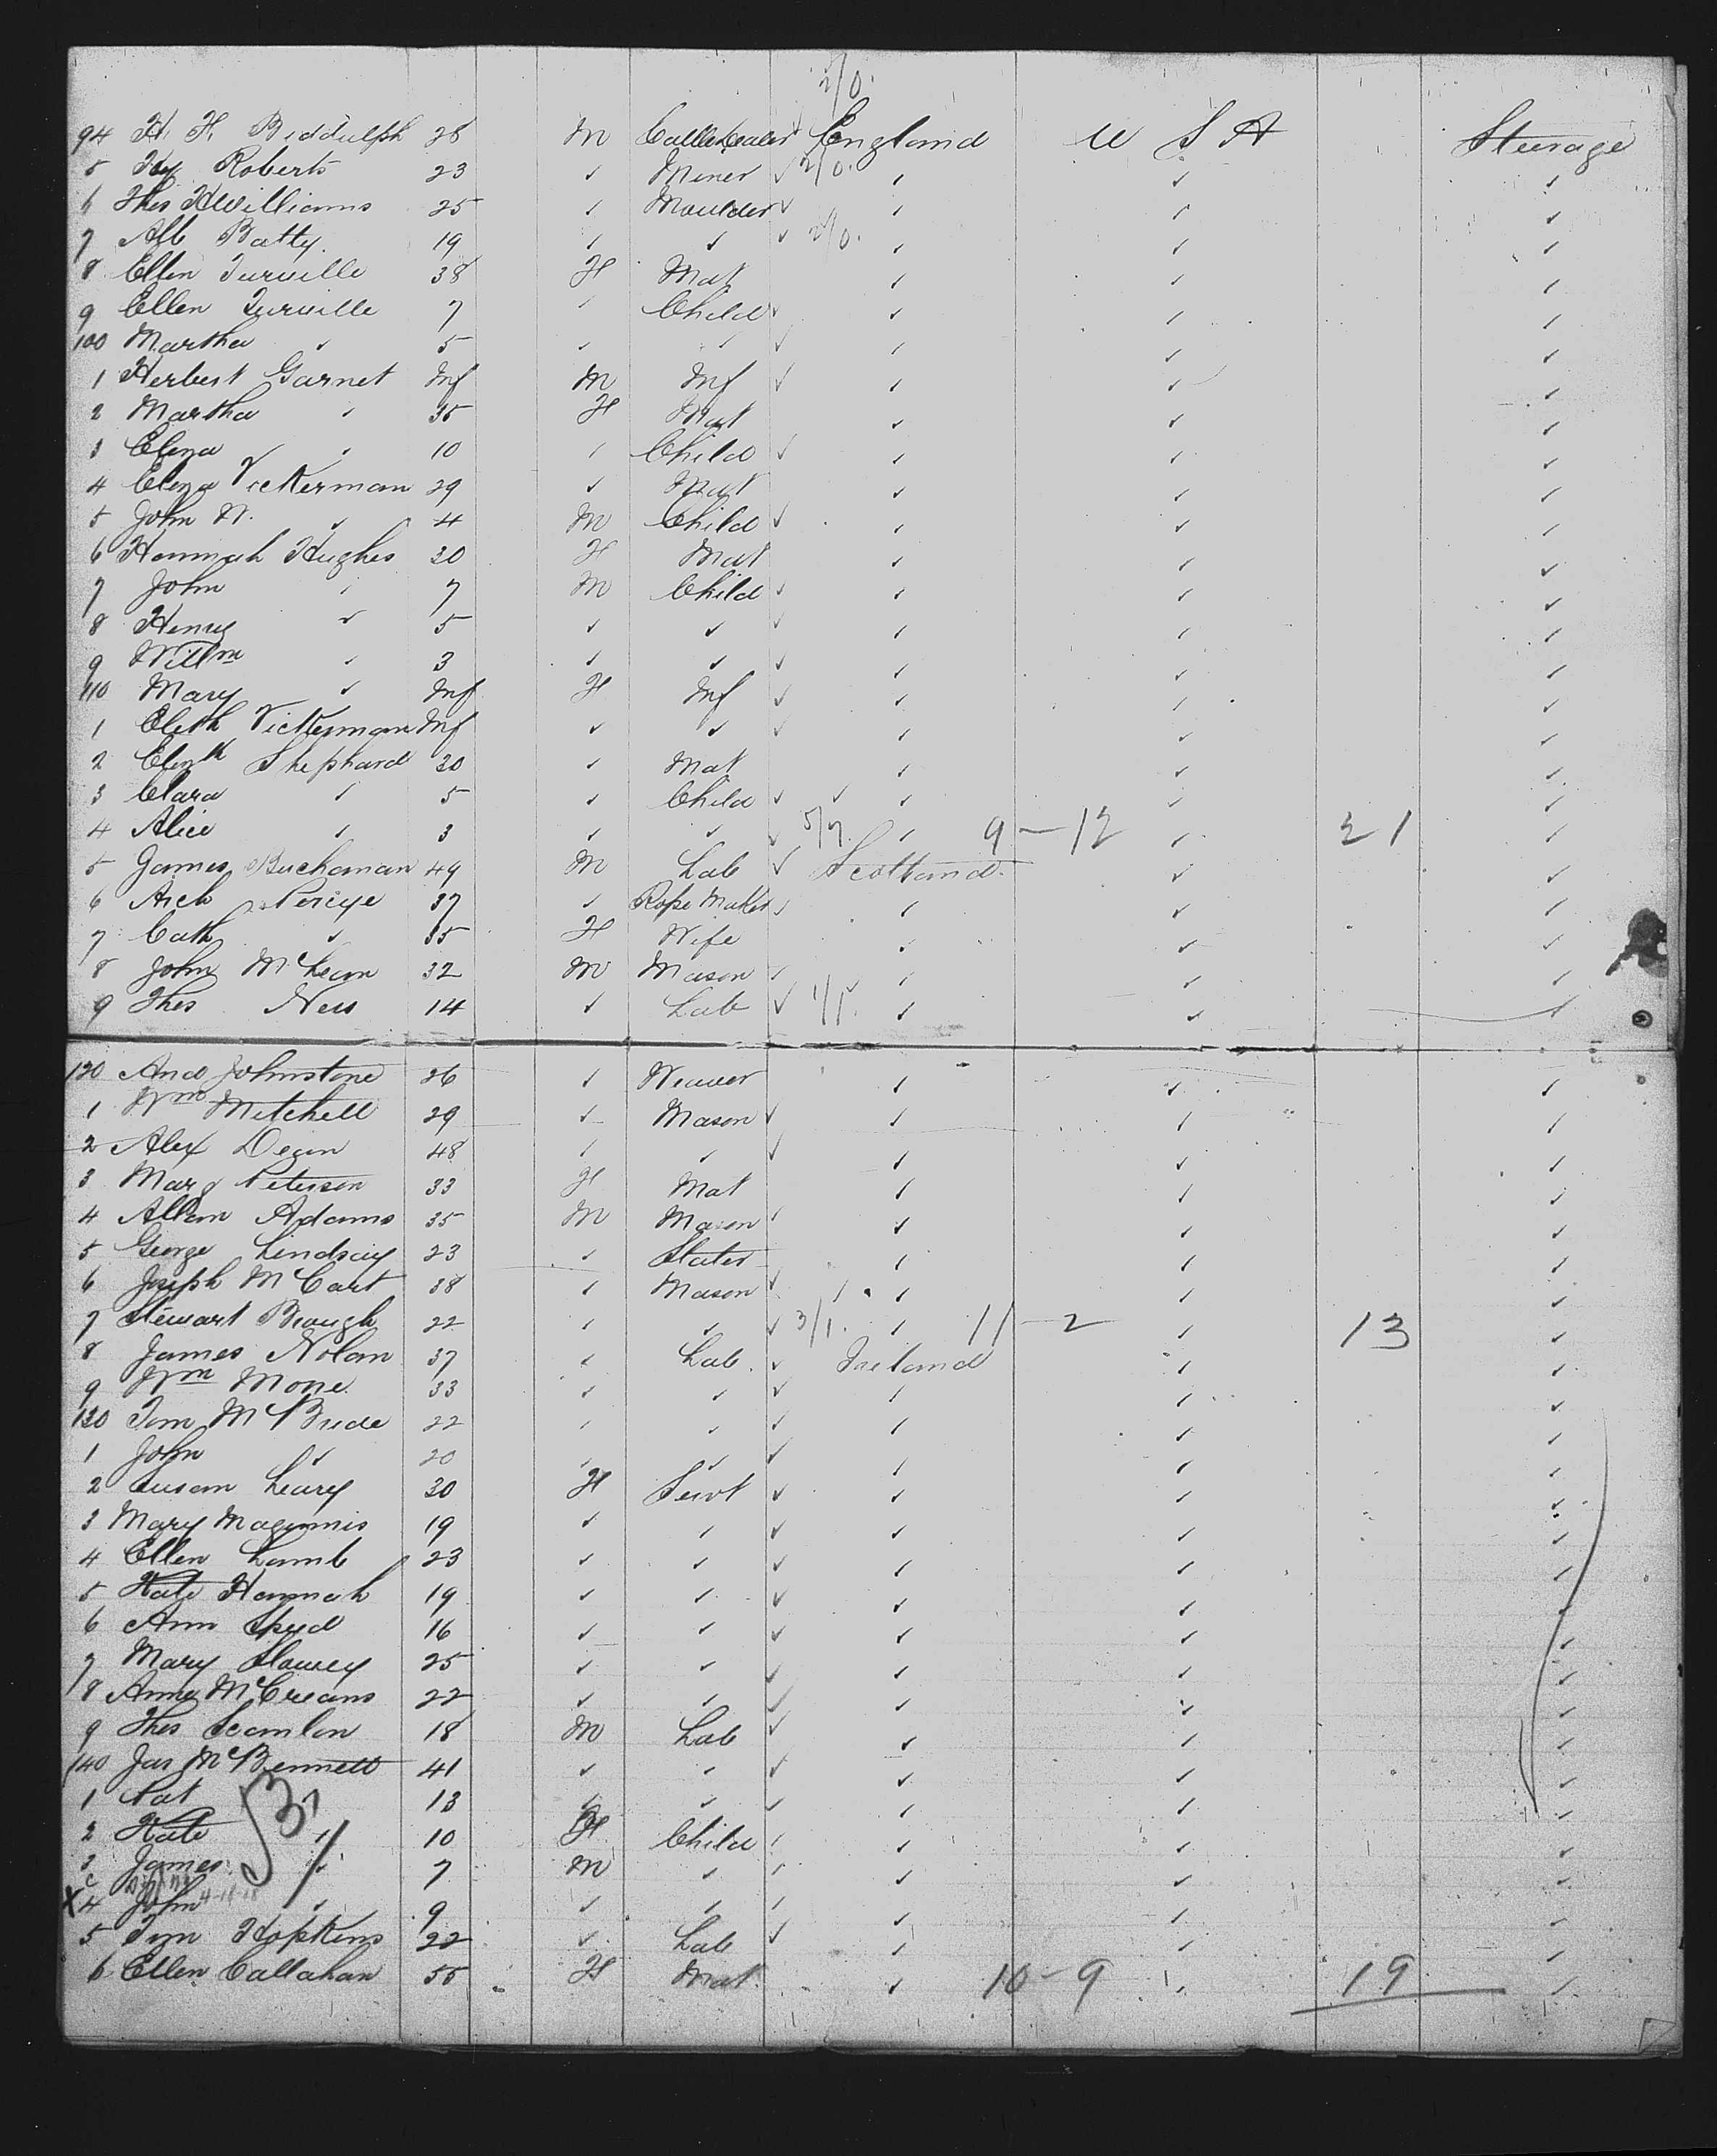 2/0.
94 H. H. Biddulph 28 M England U S A Steerage
5 Hy Roberts 23 ✓ Miner ✓ 2/0. ✓ ✓ ✓
6 Thos Williams 25 ✓ Moulder ✓ ✓ ✓ ✓
7 Alf Batty. 19 ✓ ✓ ✓ 2/0. ✓ ✓ ✓
8 Ellen Turville 38 F Mat ✓ ✓ ✓
9 Ellen Turville 7 ✓ Child ✓ ✓ ✓ ✓
100 Martha ✓ 5 ✓ ✓ ✓ ✓ ✓ ✓
1 Herbert Garnet Inf M Inf ✓ ✓ ✓ ✓
2 Martha ✓ 35 F Mat ✓ ✓ ✓
3 Eliza ✓ 10 ✓ Child ✓ ✓ ✓ ✓
4 Eliza Vickerman 29 ✓ Mat ✓ ✓ ✓
5 John W. ✓ 4 M Child ✓ ✓ ✓ ✓
6 Hannah Hughes 30 F Mat ✓ ✓ ✓
7 John ✓ 7 M Child ✓ ✓ ✓ ✓
8 Henry ✓ 5 ✓ ✓ ✓ ✓ ✓ ✓
9 Willm ✓ 3 ✓ ✓ ✓ ✓ ✓ ✓
110 Mary ✓ Inf F Inf ✓ ✓ ✓ ✓
1 Elizth Vickerman Inf ✓ ✓ ✓ ✓ ✓ ✓
2 Elizth Shephard 30 ✓ Mat ✓ ✓ ✓
3 Clara ✓ 5 ✓ Child ✓ ✓ ✓ ✓ ✓
4 Alice ✓ 3 ✓ ✓ ✓ 5/7. ✓ 9 – 12 ✓ 21 ✓
5 James Buchanan 49 M Lab ✓ Scotland ✓ ✓
6 Arch 37 ✓ Rope Maker ✓ ✓ ✓ ✓
7 Cath ✓ 35 F Wife ✓ ✓ ✓
8 John McLean 32 M Mason ✓ ✓ ✓ ✓
9 Thos Ness 14 ✓ Lab ✓ 1/1. ✓ ✓ ✓
120 And Johnstone 26 ✓ Weaver ✓ ✓ ✓
1 Wm Mitchell 29 ✓ Mason ✓ ✓ ✓ ✓
2 Alex Dean 48 ✓ ✓ ✓ ✓ ✓ ✓
3 Marg Peterson 33 F Mat ✓ ✓ ✓
4 Allan Adams 35 M Mason ✓ ✓ ✓ ✓
5 George Lindsay 23 ✓ Slater ✓ ✓ ✓
6 Joseph McCart 38 ✓ Mason ✓ ✓ ✓ ✓ ✓
7 Stewart Brough 22 ✓ ✓ ✓ 3/1. ✓ 11 – 2 ✓ 13 ✓
8 James Nolan 37 ✓ Lab. ✓ Ireland ✓ ✓
9 Wm Mone 33 ✓ ✓ ✓ ✓ ✓ ✓
130 Tom McBride 22 ✓ ✓ ✓ ✓ ✓ ✓
1 John ✓ 20 ✓ ✓ ✓ ✓ ✓ ✓
2 Susan Leary 30 F Servt ✓ ✓ ✓ ✓
3 Mary Maginnis 19 ✓ ✓ ✓ ✓ ✓ ✓
4 Ellen Lamb 23 ✓ ✓ ✓ ✓ ✓ ✓
5 Kate Hannah 19 ✓ ✓ ✓ ✓ ✓ ✓
6 Ann 16 ✓ ✓ ✓ ✓ ✓ ✓
7 Mary 25 ✓ ✓ ✓ ✓ ✓ ✓
8 Anne 22 ✓ ✓ ✓ ✓ ✓ ✓
9 Thos Scanlon 18 M Lab ✓ ✓ ✓ ✓
140 Jas McBennett 41 ✓ ✓ ✓ ✓ ✓ ✓
1 Pat ✓ 13 ✓ ✓ ✓ ✓ ✓ ✓
2 Kate ✓ 10 F Child ✓ ✓ ✓ ✓
3 James ✓ 7 M ✓ ✓ ✓ ✓ ✓
X 4 John ✓ 9 ✓ ✓ ✓ ✓ ✓ ✓
5 Tim Hopkins 22 ✓ Lab ✓ ✓ ✓ ✓
6 Ellen Callahan 55 F Mat. ✓ 10 – 9 ✓ 19 ✓